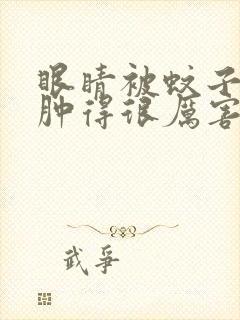 眼睛被蚊子
肿得很厉害
武争